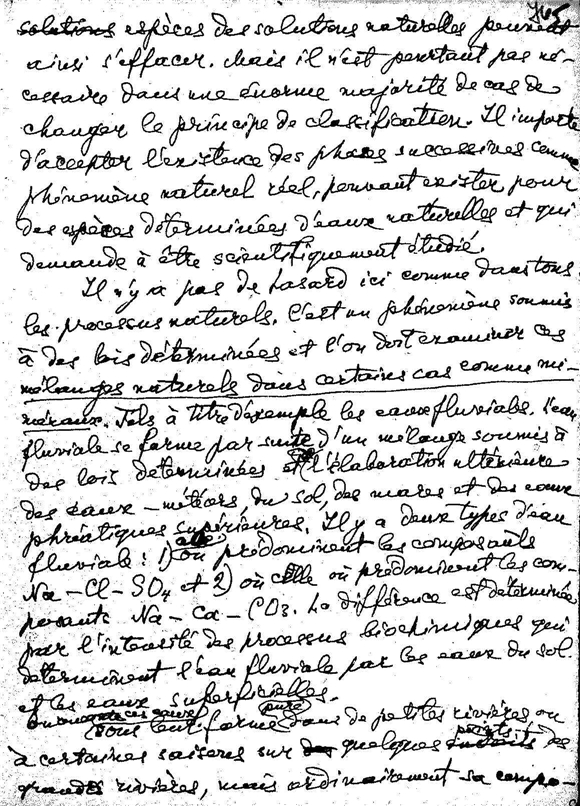 745
solutions espèces des solutions naturelles peuvent
ainsi s'effacer. Mais il n'est pourtant pas né-
cessaire dans une énorme majorité de cas de
changer le principe de classification. Il importe
d'accepter l'existence des phases successives comme
phénomène naturel réel, pouvant exister pour
des espèces déterminées d'eaux naturelles et qui
demande à être scientifiquement étudié.
Il n'y a pas de hasard ici comme dans tous
les processus naturels. C'est un phénomène soumis
à des lois déterminées et l'on doit examiner ces
mélanges naturels dans certains cas comme mi-
néraux. Tels à titre d'exemple les eaux fluviales. L'eau
fluviale se forme par suite d'un mélange soumis à
des lois déterminées et de l'élaboration ultérieure
des eaux – météors, du sol, des mares et des eaux
phréatiques supérieures. Il y a deux types d'eau
fluviale: 1) celle où prédominent les composants
Na – Cl – SO4 et 2) celle où prédominent les com-
posants Na – Ca – CO3. La différence est déterminée
par l'intensité des processus biochimiques qui
déterminent l'eau fluviale par les eaux du sol
et les eaux superficielles.
ces eaux sous leur forme pure dans de petites rivières ou
à certaines saisons sur quelques points des
grandes rivières, mais ordinairement sa compo-